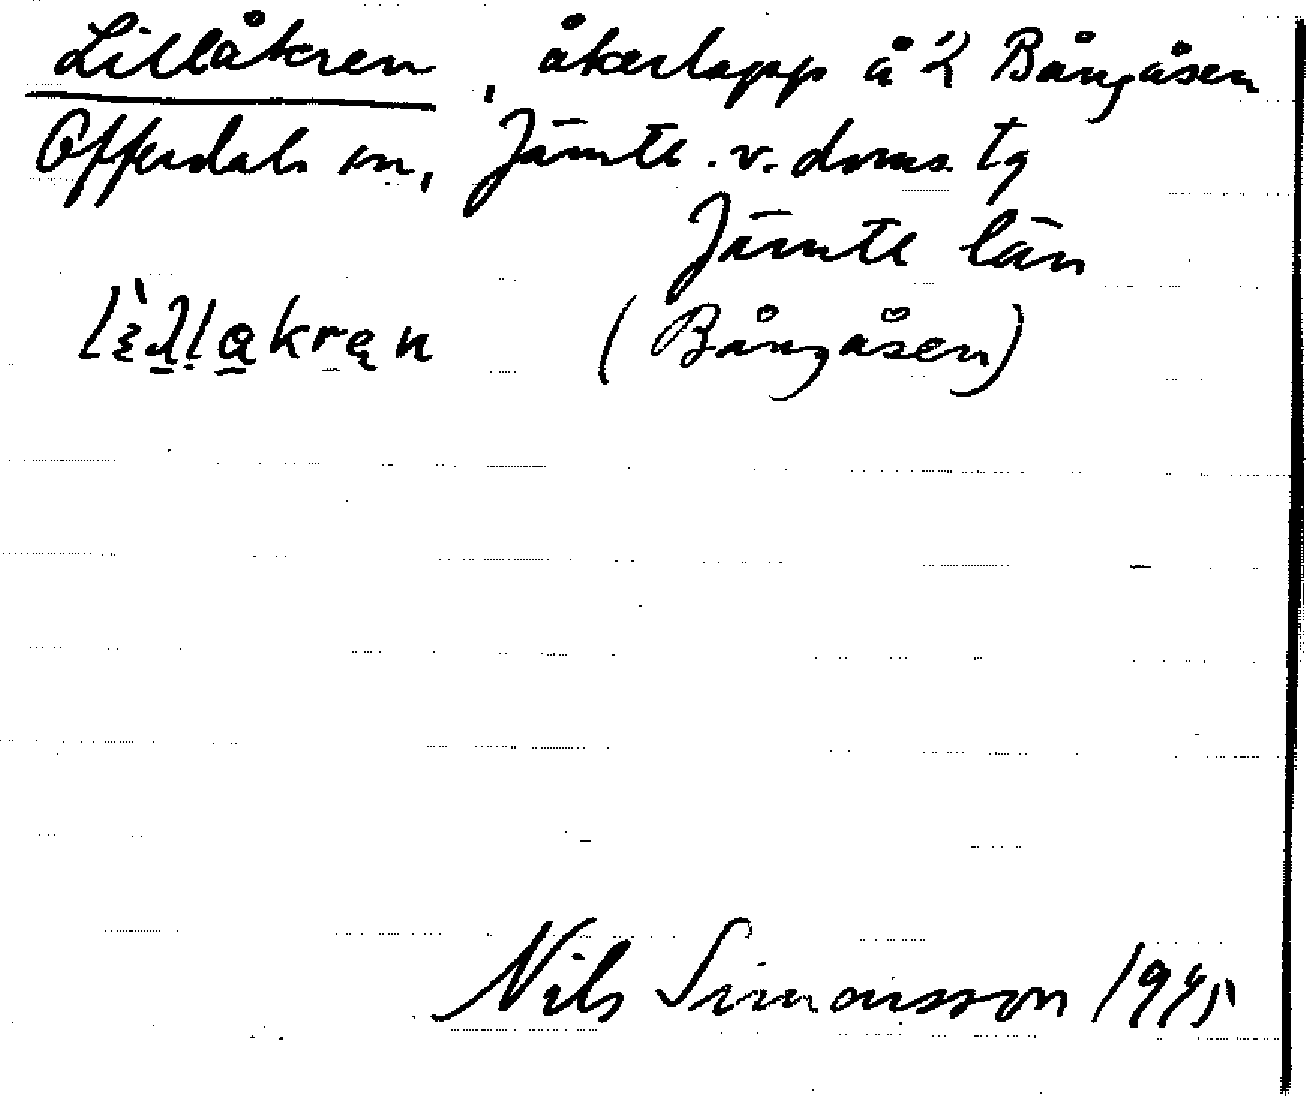 Lillåkren, åkerlapp å 2 Bångåsen
Offerdals sn, Jämtl. v. doms. tg
Jämtl län
(Bångåsen)
Nils Simonsson 1945